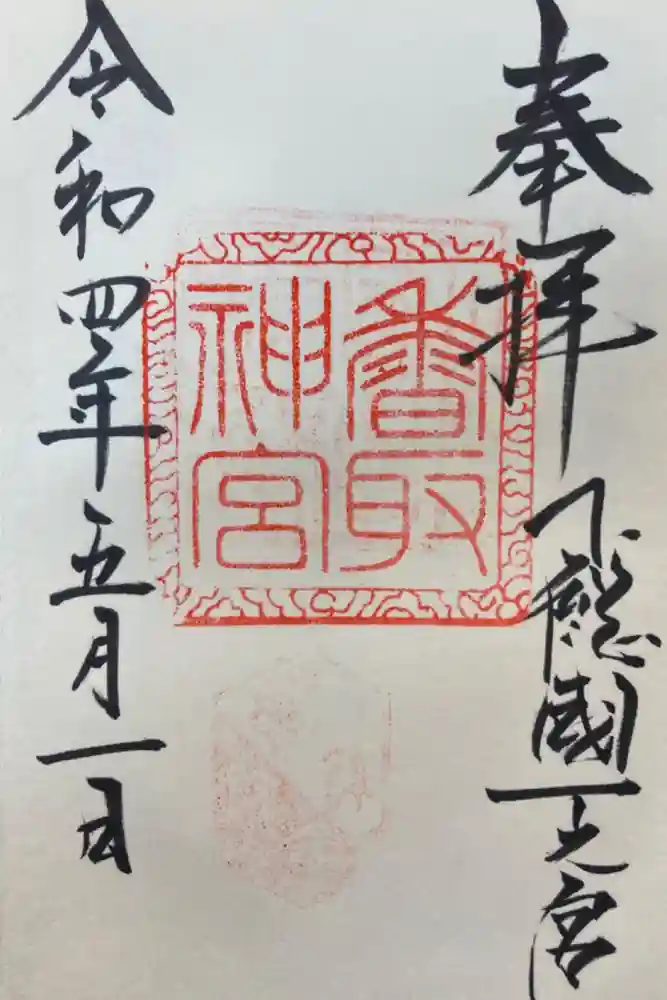 奉拝
下總國一之宮
香取
神宮
令和四年五月一日